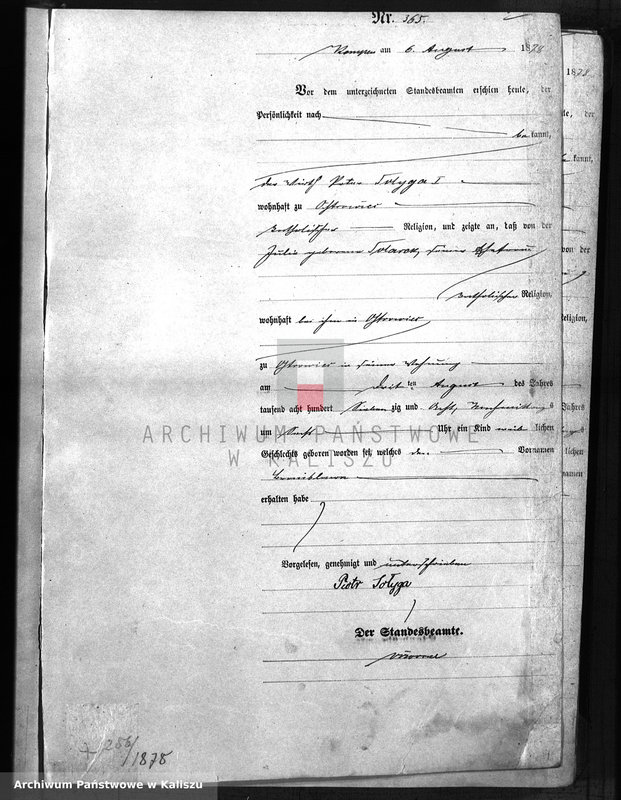 Nr. 365.
Kempen am 6. August 1878
Vor dem unterzeichneten Standesbeamten erschien heute, der
Persönlichkeit nach
bekannt,
der Wirth Peter Solyga I
wohnhaft zu
katholischer Religion, und zeigte an, daß von der
Julie geborene seiner Ehefrau
katholischer Religion,
wohnhaft bei ihm in
zu in seiner Wohnung
am dritten August des Jahres
tausend acht hundert Sieben zig und Acht, Nachmittags
um Uhr ein Kind weiblichen
Geschlechts geboren worden sei, welches den Vornamen
erhalten habe
Vorgelesen, genehmigt und unterschrieben
Piotr Sołyga
Der Standesbeamte.
1878
te, der
kannt,
von der
Religion,
Jahres
lichen
namen
ARCHIWUM PAŃSTWOWE
W KALISZU
+ 256/1878
Archiwum Państwowe w Kaliszu